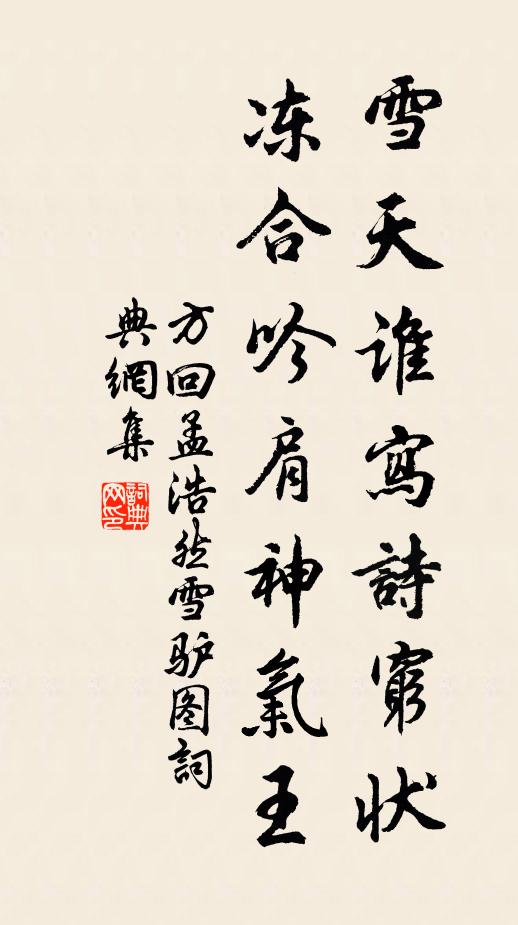 雪天谁寫詩窮状
冻合吟肩神氣王
方回孟浩然雪驴图詞
典網集
詞典网印